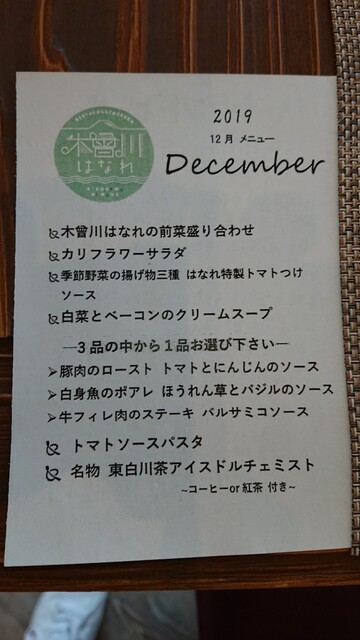 木曾川
はなれ
2019
12月 メニュー
December
木曾川はなれの前菜盛り合わせ
カリフラワーサラダ
季節野菜の揚げ物三種 はなれ特製トマトつけ
ソース
白菜とベーコンのクリームスープ
―3品の中から1品お選び下さい―
➢豚肉のロースト トマトとにんじんのソース
➢白身魚のポアレ ほうれん草とバジルのソース
➢牛フィレ肉のステーキ バルサミコソース
トマトソースパスタ
名物 東白川茶アイスドルチェミスト
~コーヒーor紅茶 付き~